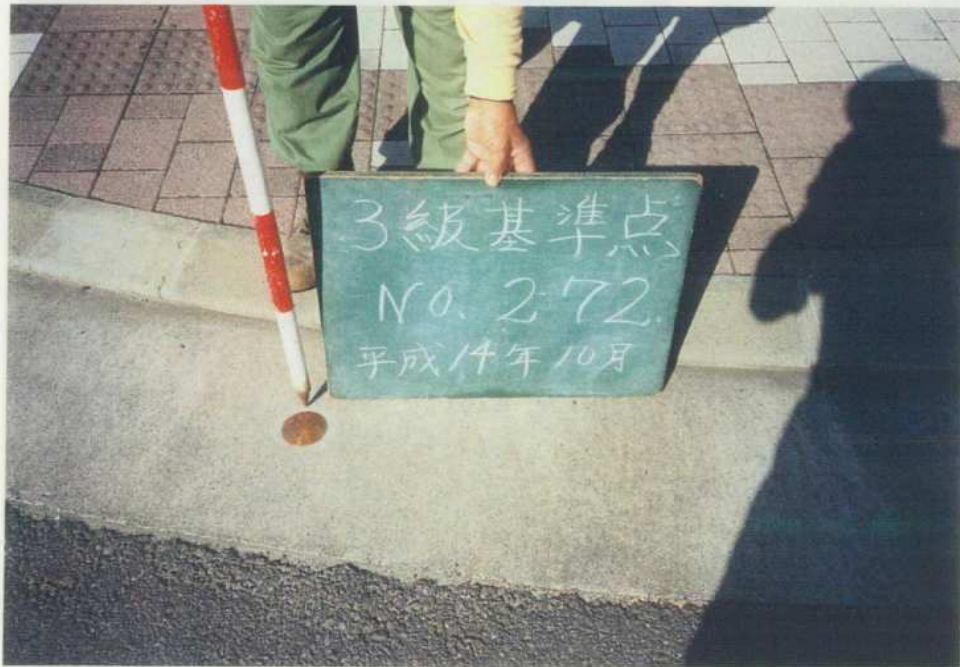 3級基準点
NO. 272
平成14年10月